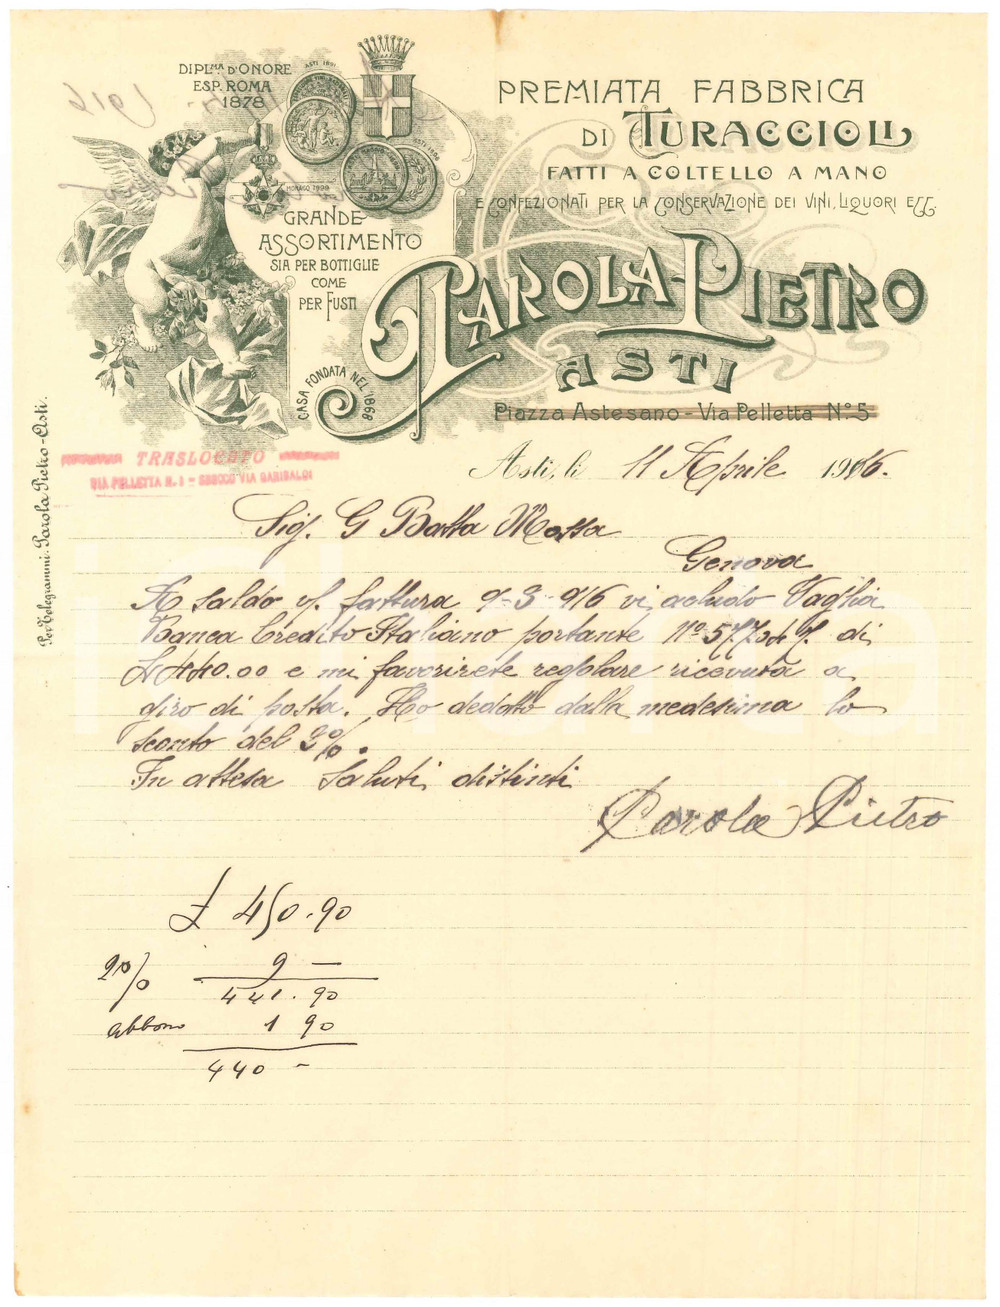 DIPL.MA D'ONORE
ESP. ROMA
1878
ASTI 1891
ASTI 1898
MONACO 1899
GRANDE
ASSORTIMENTO
SIA PER BOTTIGLIE
COME
PER FUSTI
CASA FONDATA NEL 1868
PREMIATA FABBRICA
DI TURACCIOLI
FATTI A COLTELLO A MANO
E CONFEZIONATI PER LA CONSERVAZIONE DEI VINI, LIQUORI ECC.
PAROLA PIETRO
ASTI
Piazza Astesano - Via Pelletta N.º 5
Per Telegrammi: Parola Pietro - Asti.
TRASLOCATO
VIA PELLETTA N. 1 - SBOCCO VIA GARIBALDI
Asti, li 11 Aprile 1916.
Sig. G Batta Mossa
Genova
A saldo v/. fattura 9-3-916 vi acludo Vaglia
Banca Credito Italiano portante Nº 577
L 440.00 e mi favorirete regolare ricevuta a
giro di posta. Ho dedotto dalla medesima lo
sconto del 2%.
In attesa Saluti distinti
Parola Pietro
£ 450.90
2% 9 —
441.90
abbono 1 90
440 -
1916